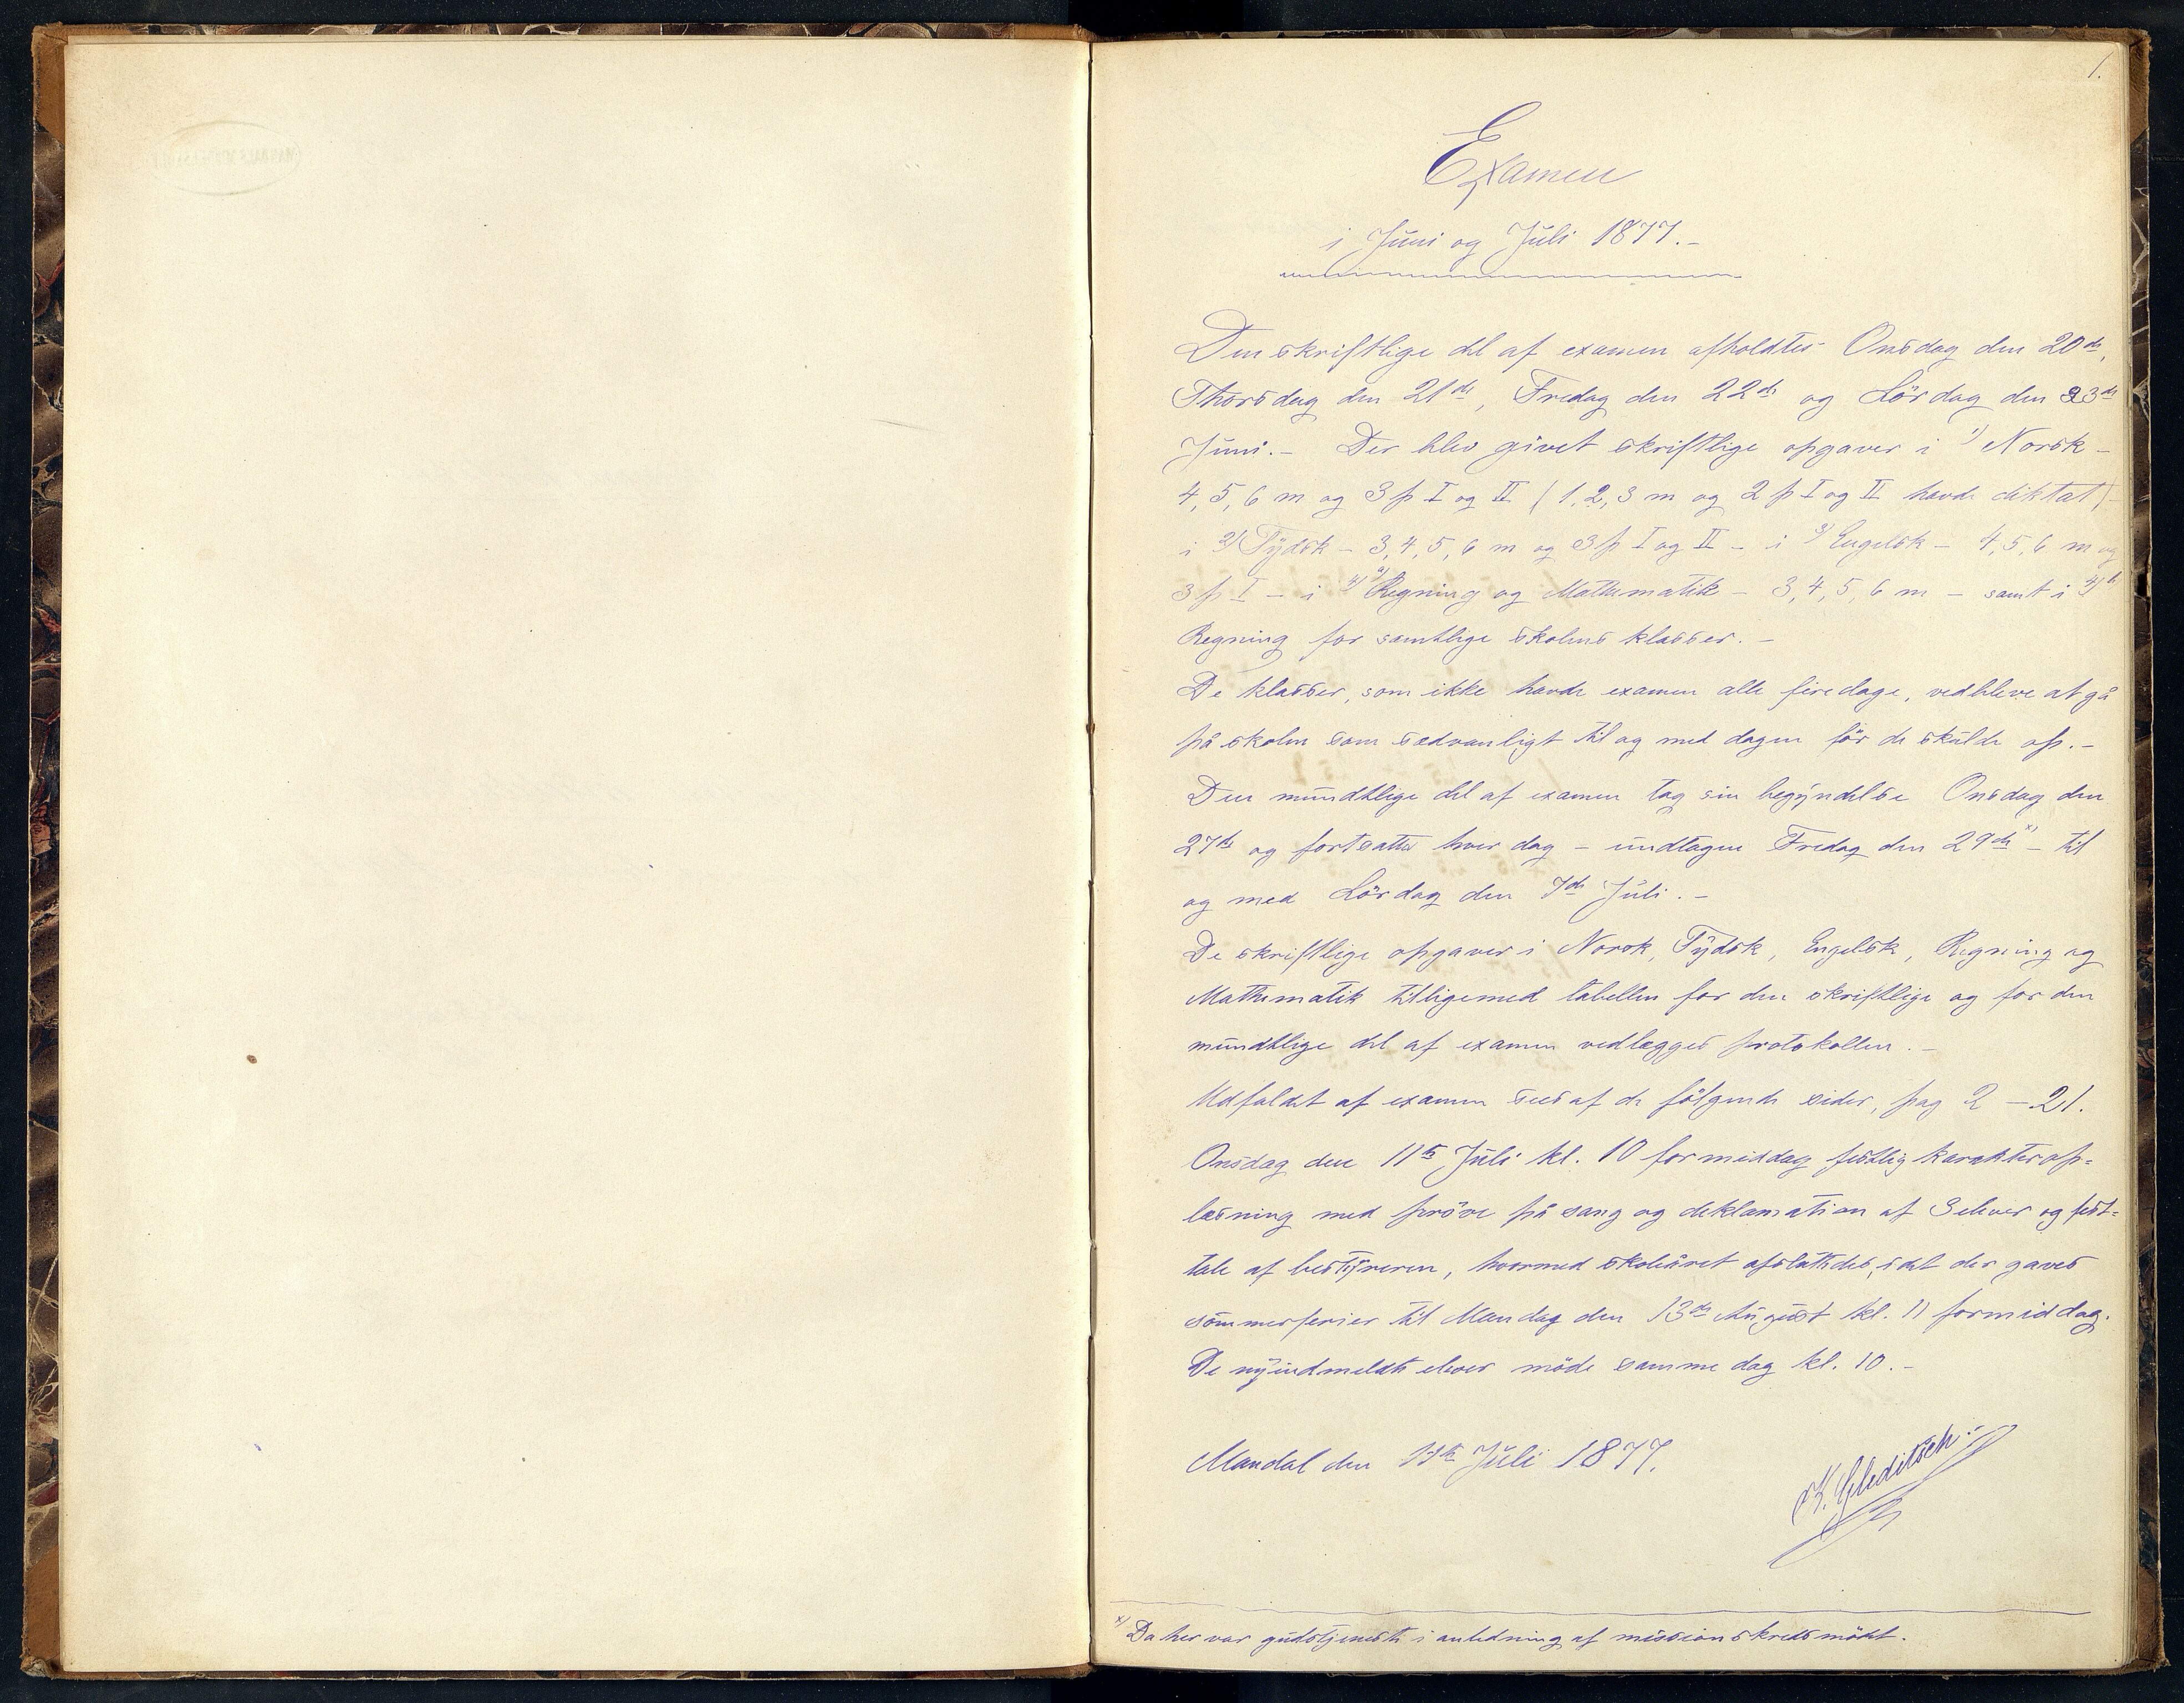 1.
Examen
i Juni og Juli 1877.-
Den skriftlige del af examen afholdtes Onsdag den 20de,
Thorsdag den 21de, Fredag den 22de og Lördag den 23de
Juni.- Der blev givet skriftlige opgaver i 1) Norsk -
4, 5, 6 m og 3 p I og II (1, 2, 3 m og 2 p I og II havde diktat) -
i 2) Tydsk - 3, 4, 5, 6 m og 3 p I og II - i 3) Engelsk - 4, 5, 6 m og
3 p I - i 4) a) Regning og Mathematik - 3, 4, 5, 6 m - samt i 4) b
Regning for samtlige skolens klasser. -
De klasser, som ikke havde examen alle fire dage, vedbleve at gå
på skolen som sædvanligt til og med dagen för de skulde op. -
Den mundtlige del af examen tog sin begyndelse Onsdag den
27de og fortsattes hver dag - undtagen Fredag den 29de x) - til
og med Lördag den 7de Juli. -
De skriftlige opgaver i Norsk, Tydsk, Engelsk, Regning og
Mathematik tilligemed tabellen for den skriftlige og for den
mundtlige del af examen vedlægges protokollen. -
Udfaldet af examen sees af de fölgende sider, pag 2 - 21.
Onsdag den 11te Juli kl. 10 formiddag festlig karakterop=
læsning med pröve på sang og deklamation af 3 elever og fest=
tale af bestyreren, hvormed skoleåret afsluttedes, idet der gaves
sommerferier til Mandag den 13de August kl. 11 formiddag.
De nyindmeldte elever möde samme dag kl. 10. -
Mandal den 11te Juli 1877.
K. Gleditsch
x) Da her var gudstjeneste i anledning af missionskredsmödet.